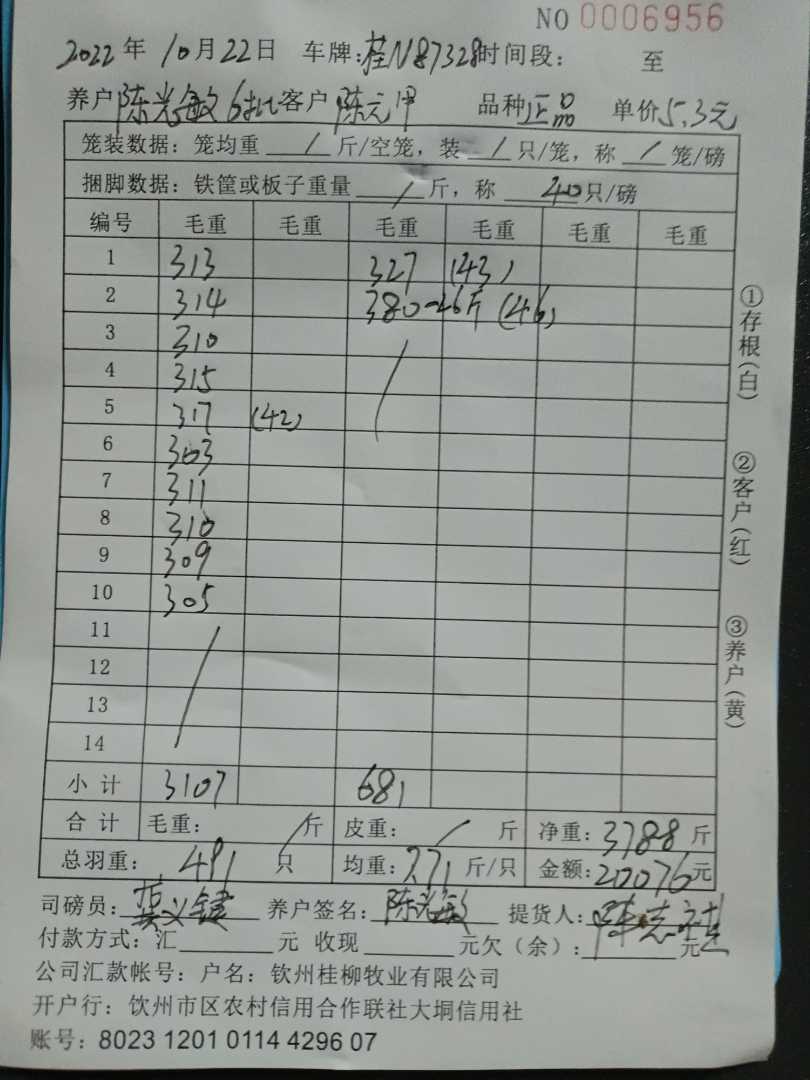 NO 0006956
2022年 10月22日 车牌:桂N87328时间段: 至
养户陈光敏6批客户陈元甲 品种正品 单价5.3元
笼装数据:笼均重 / 斤/空笼,装 / 只/笼,称 / 笼/磅
捆脚数据:铁筐或板子重量 / 斤,称 40只/磅
编号 毛重 毛重 毛重 毛重 毛重 毛重
1 313 327 (43)
2 314 380-26斤 (46)
3 310
4 315
5 317 (42)
6 303
7 311
8 310
9 309
10 305
11
12
13
14
小计 3107 681
合计 毛重: / 斤 皮重: / 斤 净重:3788斤
总羽重: 491 只 均重:7.71斤/只 金额:20076元
司磅员: 养户签名:陈光敏 提货人:
付款方式:汇 元 收现 元欠(余): 元
公司汇款帐号:户名:钦州桂柳牧业有限公司
开户行:饮州市区农村信用合作联社大垌信用社
账号:8023 1201 0114 4296 07
①存根(白)
②客户(红)
③养户(黄)